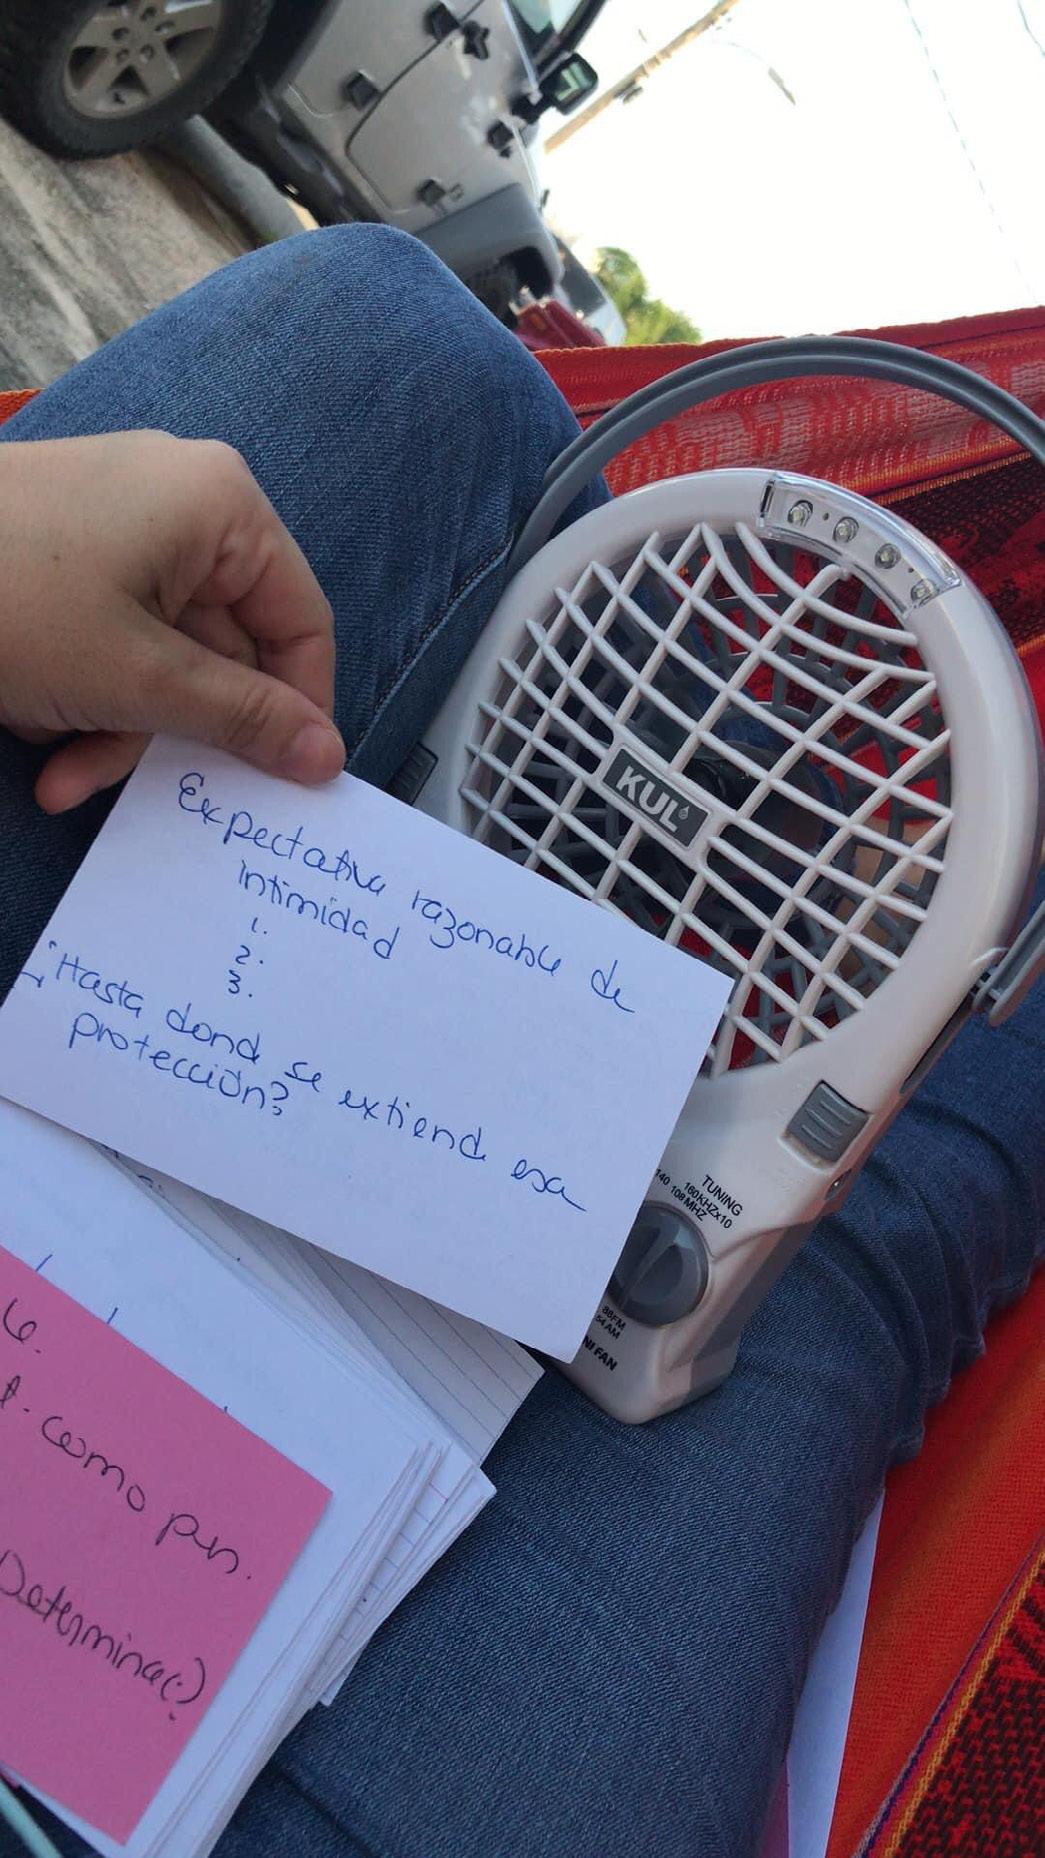 Expectativa razonable de
intimidad
1.
2.
3.
¿Hasta donde se extiende esa
protección?
KUL
TUNING
160KHZx10
140 108 MHZ
88FM
54 AM
NI FAN
como per.
Determinac(?)